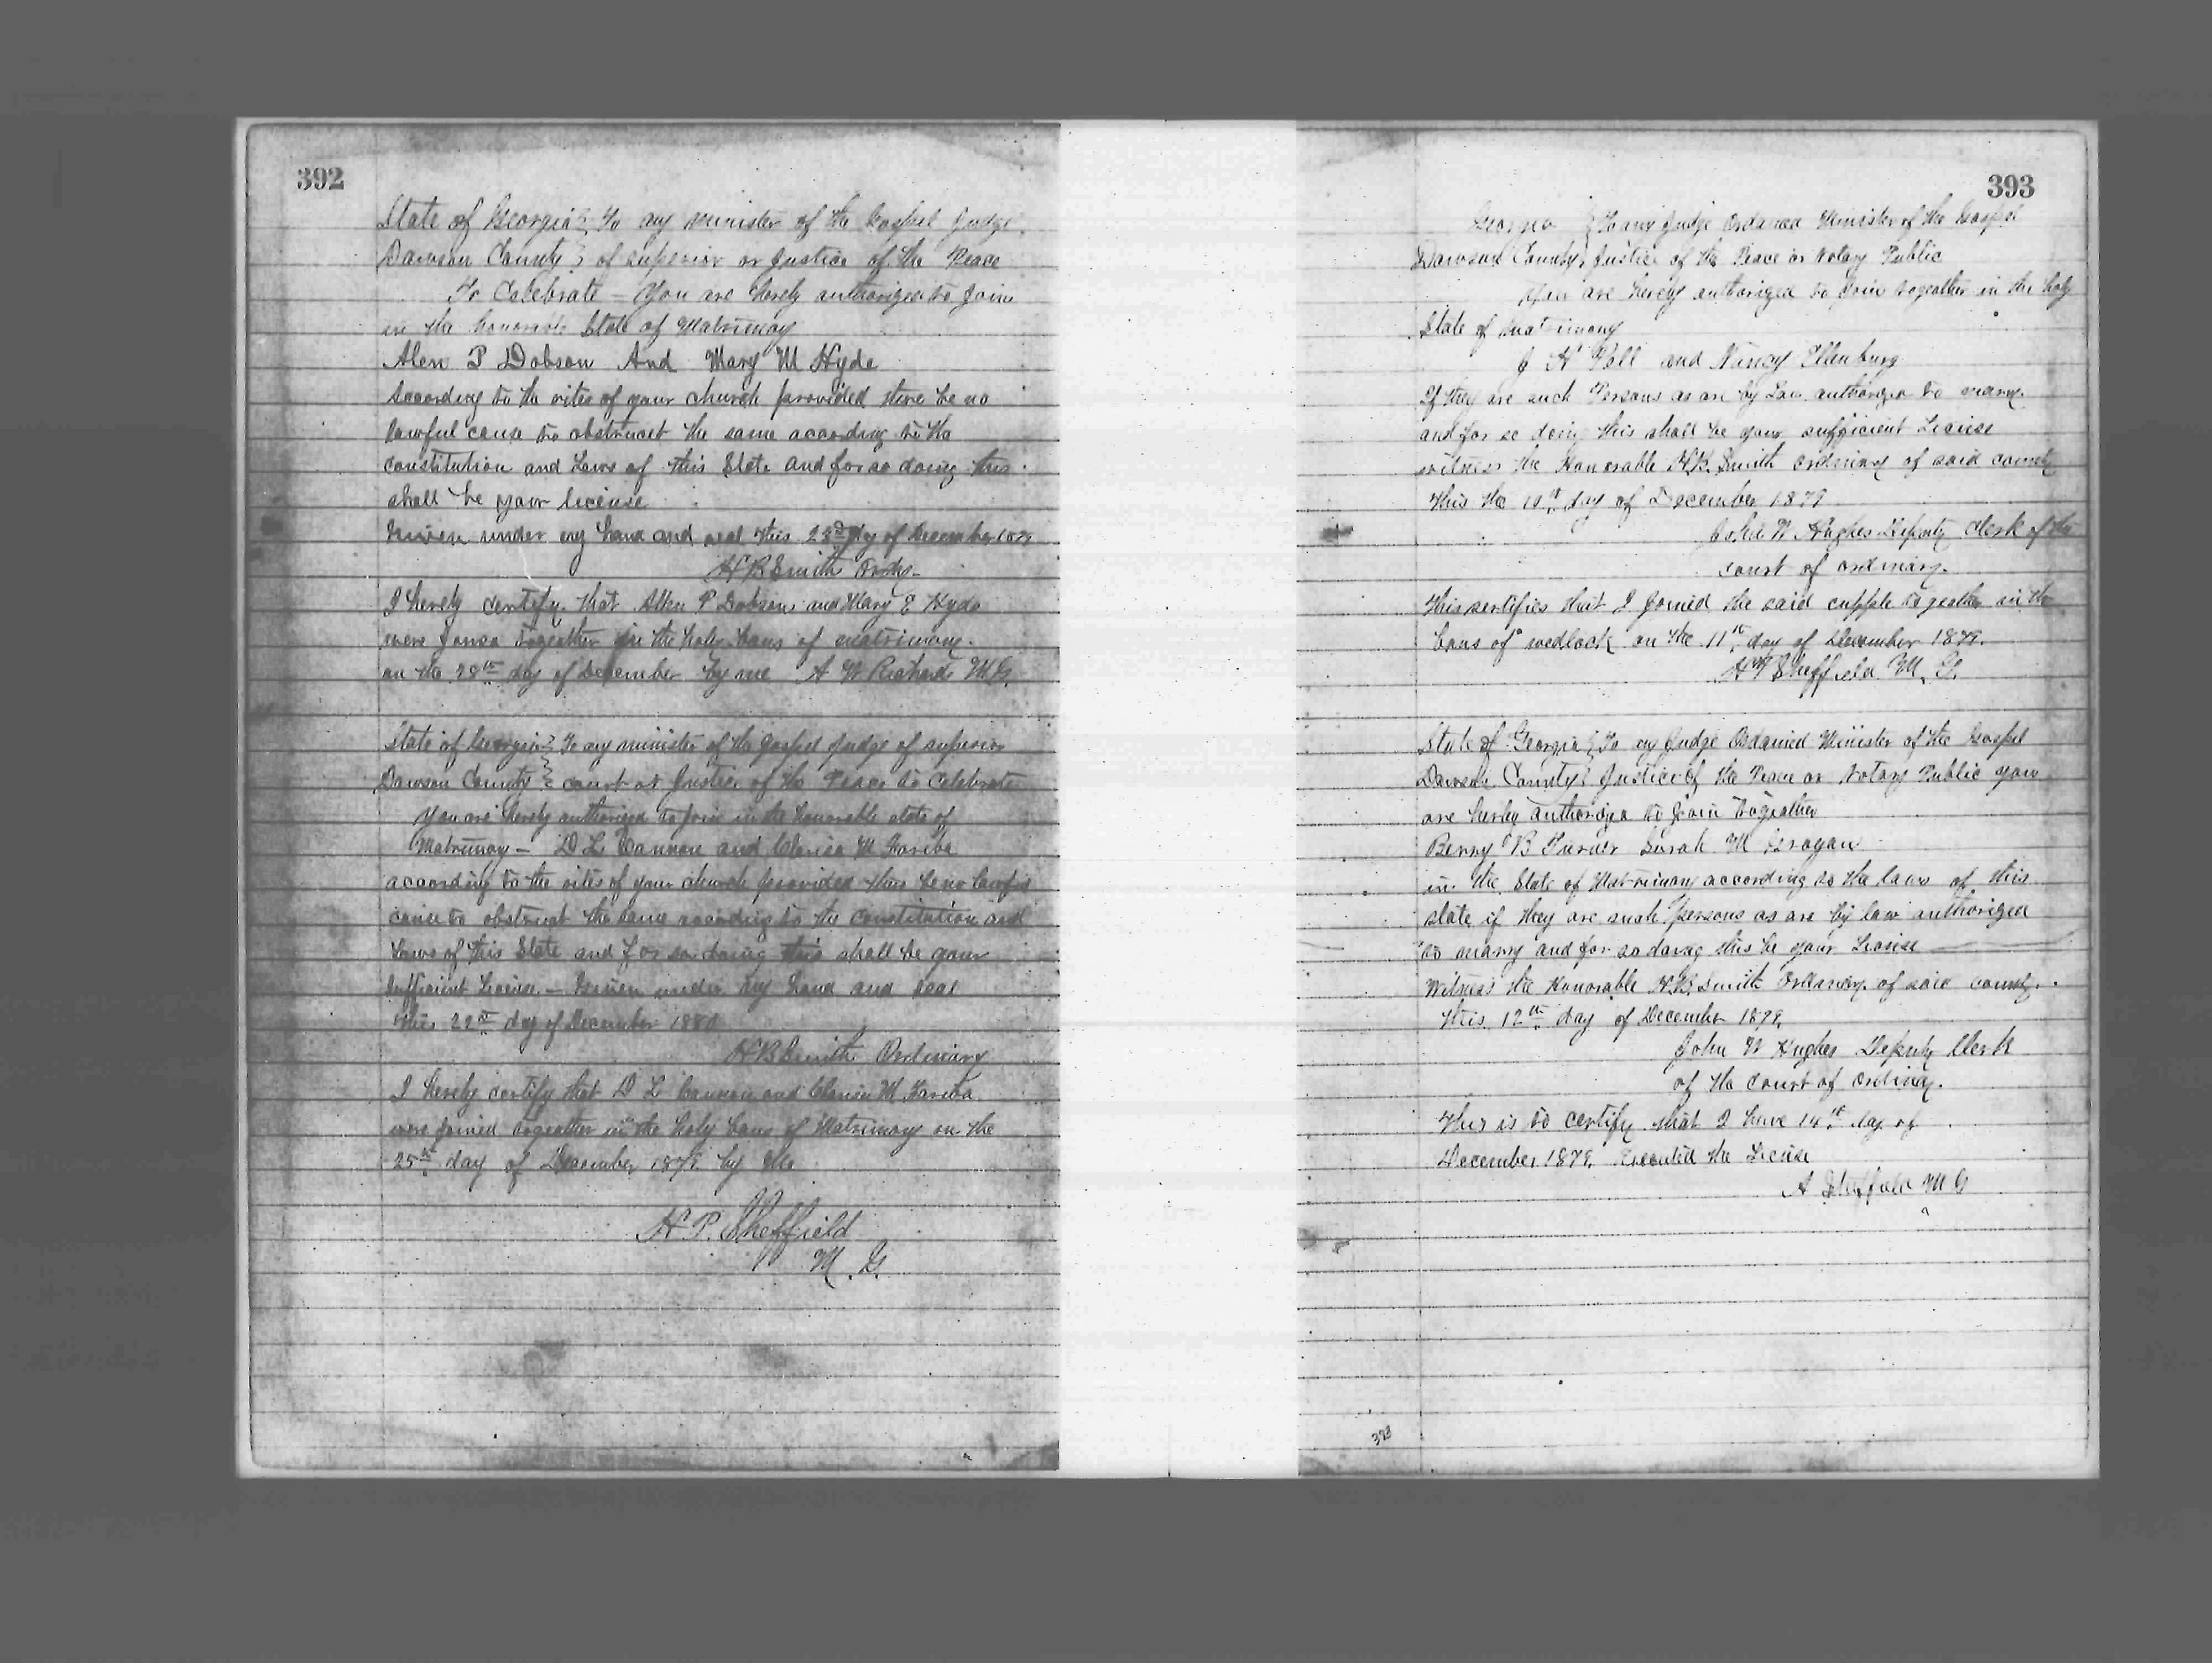 392
State of Georgia } To any minister of the Gospel Judge
Dawson County } of superior or Justice of the Peace
To Celebrate — You are herely authorized to join
in the honorable State of Matrimony
Alen P Dobson And Mary M Hyde
According to the rites of your church provided there be no
lawful cause to obstruct the same according to the
constitution and Laws of this State and for so doing this
shall be your license
Given under my hand and seal this 23rd day of December 1879
H B Smith Ordy.
I herely certify that Allen P Dobson and Mary E Hyde
were joined together in the holy bans of matrimony.
on the 28th day of December by me A W Richards M.G.
State of Georgia } To any minister of the Gospel Judge of superior
Dawson County } court or Justice of the Peace to Celebrate
You are herely authorized to join in the honorable state of
Matrimony — D L Cannon and M
according to the rites of your church provided there be no lawful
cause to obstruct the same according to the constitution and
Laws of this State and for so doing this shall be your
sufficient License. — Given under my hand and seal
this 22nd day of December 1880
H B Smith Ordinary
I herely certify that D L Cannon and M
were joined together in the holy bans of Matrimony on the
25th day of December 1879 by me
H P. Sheffield
M. G.
393
Georgia } To any Judge Ordained Minister of the Gospel
Dawson County } Justice of the Peace or Notary Public
You are herely authorized to join together in the holy
State of matrimony
J H and Nancy Ellenburg
If they are such Persons as are by Law authorized to marry.
and for so doing this shall be your sufficient License
witness the Honorable H.B. Smith ordinary of said county
this the 10th day of December 1879
John W Hughes Deputy Clerk of the
court of ordinary.
This certifies that I joined the said cupple together in the
bans of wedlock on the 11th day of December 1879.
H P Sheffield M. G.
State of Georgia } To any Judge Ordained Minister of the Gospel
Dawson County } Justice of the Peace or Notary Public you
are herley authorized to join together
Berry B Turner Sarah M Grogan
in the State of Matrimony according to the laws of this
state if they are such persons as are by law authorized
to marry and for so doing this be your License
Witness the Honorable H.B. Smith Ordinary of said county.
this 12th day of December 1879.
John W Hughes Deputy Clerk
of the Court of Ordinary.
This is to certify that I have 14th day of
December 1879. Executed the License
A Sheffield M G
393